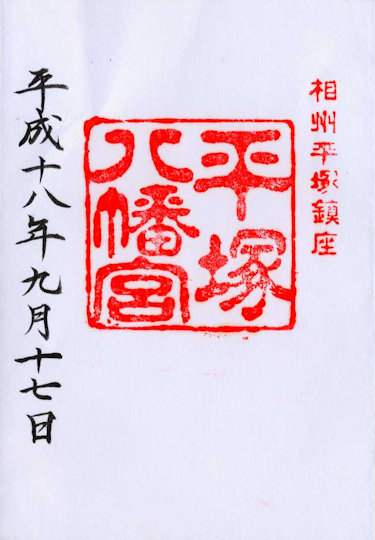 相州平塚鎮座
平塚
八幡宮
平成十八年九月十七日